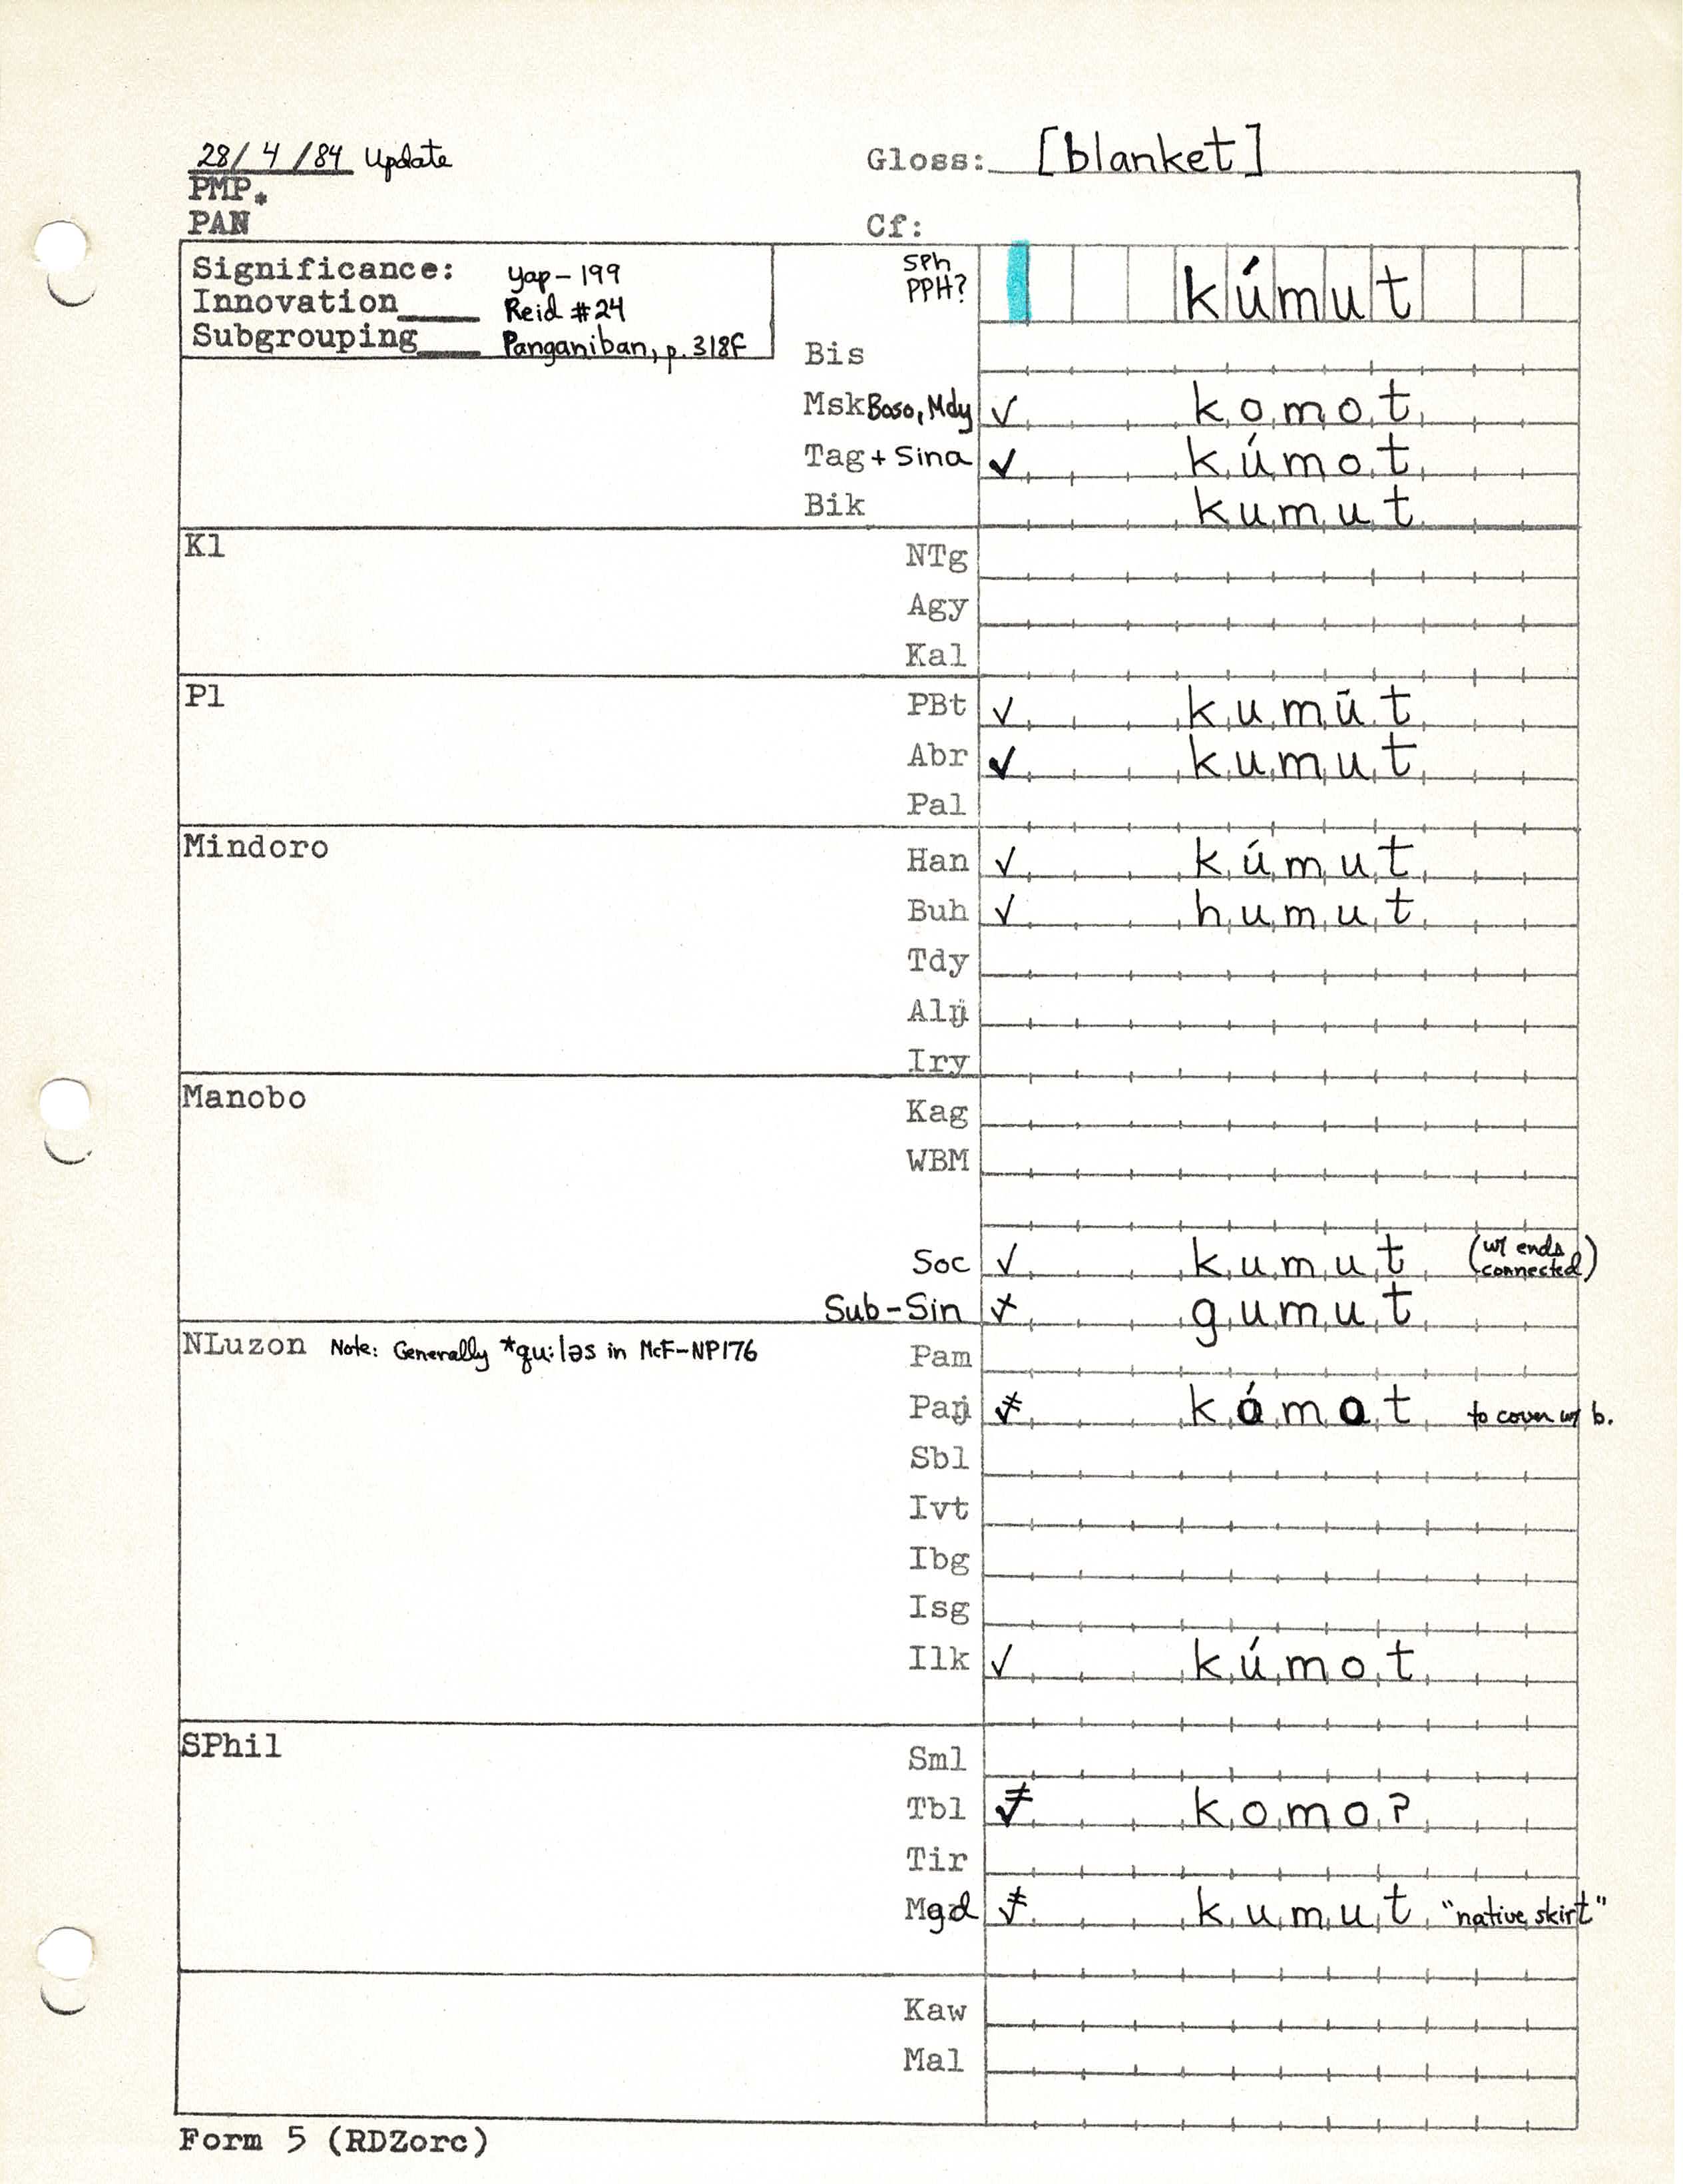 28/4/84 Update
Gloss: [blanket]
PMP*
PAN
Cf:
Significance: Yap-199
Innovation Reid #24
Subgrouping Panganiban, p. 318F
SPh
PPH? kúmut
Bis
Msk Boso, Mdy ✓ komot
Tag + Sina ✓ kúmot
Bik kumut
Kl
NTg
Agy
Kal
Pl
PBt ✓ kumūt
Abr ✓ kumut
Pal
Mindoro
Han ✓ kúmut
Buh ✓ humut
Tdy
Alŋ
Iry
Manobo
Kag
WBM
Soc ✓ kumut (w/ ends connected)
Sub-Sin gumut
NLuzon Note: Generally *qu:ləs in McF-NP176
Pam
Paŋ kómot to cover w/ b.
Sbl
Ivt
Ibg
Isg
Ilk ✓ kúmot
SPhil
Sml
Tbl komoʔ
Tir
Mgd kumut "native skirt"
Kaw
Mal
Form 5 (RDZorc)